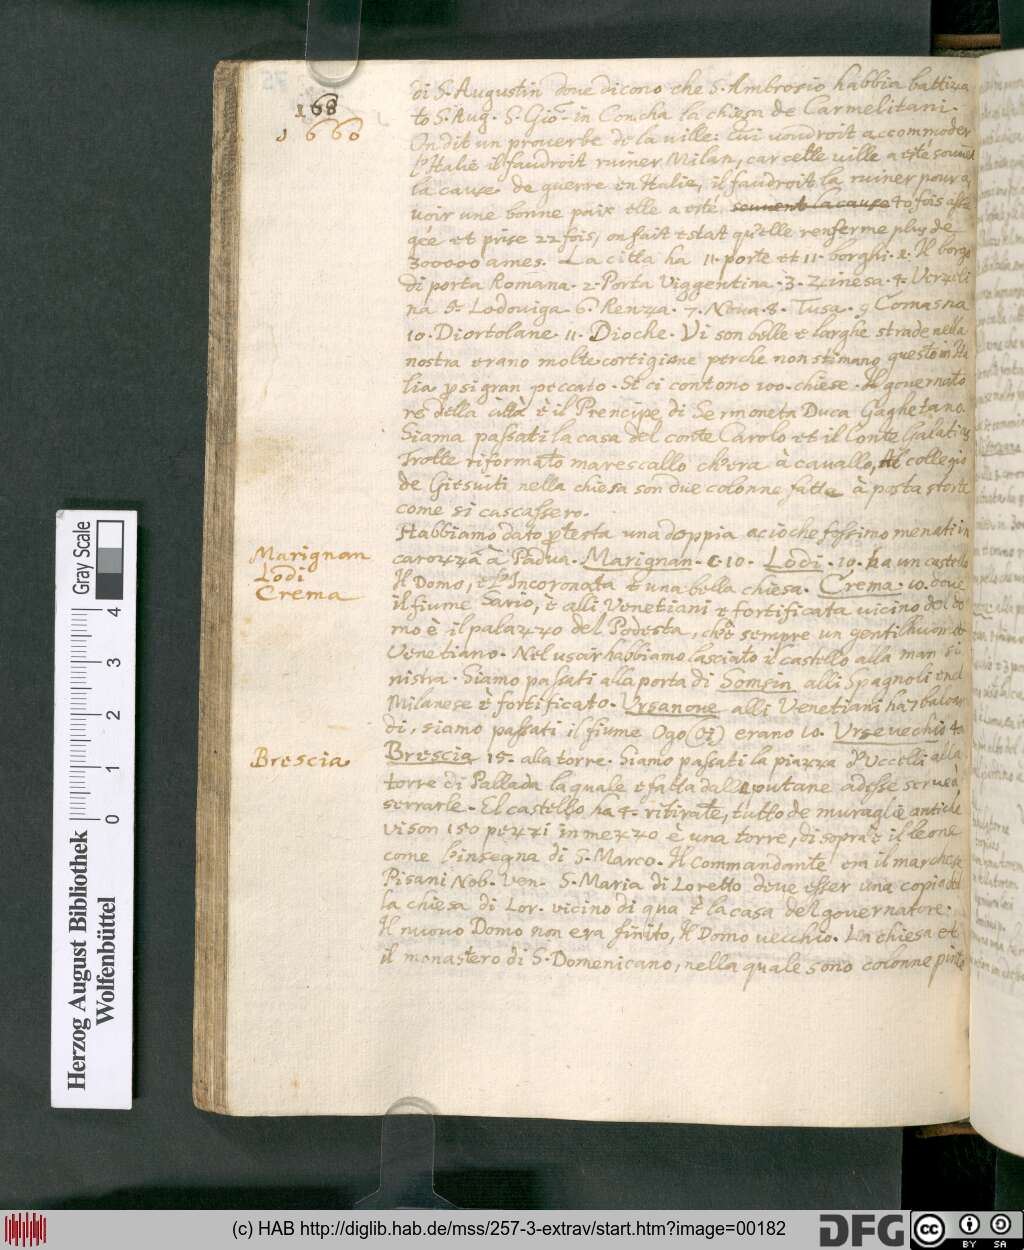 168
1660
di S. Augustin dove dicono che S. Ambrosio habbia battiza
to S. Aug. S. Gio: in Concha la chiesa de Carmelitani.
On dit un proverbe de la ville: Qui voudroit accommoder
l'Italie il faudroit ruiner Milan, car cette ville a esté souvent
la cause de guerre en Italie, il faudroit la ruiner pour a
voir une bonne paix elle a esté souvent la cause 40 fois assie
gée et prise 22 fois, on fait estat qu'elle renferme plus de
300000 ames. La citta ha 11. porte et 11. borghi. 1. Il borgo
di porta Romana. 2. Porta Viggentina. 3. Zinesa. 4. Verzeli
na 5. Lodoviga 6. Renza. 7. Nova. 8. Tusa. 9 Comasna
10. Diortolane 11. Dioche. Vi son belle e larghe strade nella
nostra erano molte cortigiane perche non stimano questo in Ita
lia p si gran peccato. Si ci contono 100. chiese. Il governato
re della città è il Prencipe di Sermoneta Duca Gaghetano.
Siama passati la casa del conte Carolo et il Conte Galatias
Trotte riformato marescallo ch'era à cavallo, Al collegio
de Giesuiti nella chiesa son due colonne fatte à posta storte
come si cascassero.
Habbiamo dato p testa una doppia acioche fossimo menati in
carozza à Padua. Marignan. 10. Lodi. 10. ha un castello
Il Domo, e l'Incoronata e una bella chiesa. Crema. 10. dove
il fiume Sario, è alli Venetiani e fortificata vicino del do
mo è il palazzo del Podesta, ch'è sempre un gentilhuomo
Venetiano. Nel uscir habbiamo lasciato il castello alla man si
nistra. Siamo passati alla porta di Somsin alli Spagnoli nel
Milanese è fortificato. Ursanove alli Venetiani ha 7 baloar
di, siamo passati il fiume Ogo (Oi) erano 10. Ursevechio 4.
Brescia 15. alla torre. Siamo passati la piazza d'Uccelli alla
torre di Pallada la quale e fatta dalle putane adesse serve à
serrarle. El castello ha 4. ritirate, tutto de muraglie antiche
vi son 150 pezzi in mezzo è una torre, di sopra è il leone
come l'insegna di S. Marco. Il commandante era il marchese
Pisani Nob. Ven. S. Maria di Loretto deve esser una copia del
la chiesa di Lor. vicino di qua è la casa del governatore.
Il nuovo Domo non era finito, Il Domo vecchio. La chiesa et
il monastero di S. Domenicano, nella quale sono colonne pinte
Marignan
Lodi
Crema
Brescia
Gray Scale
0 1 2 3 4
Herzog August Bibliothek
Wolfenbüttel
(c) HAB http://diglib.hab.de/mss/257-3-extrav/start.htm?image=00182
DFG
cc BY SA